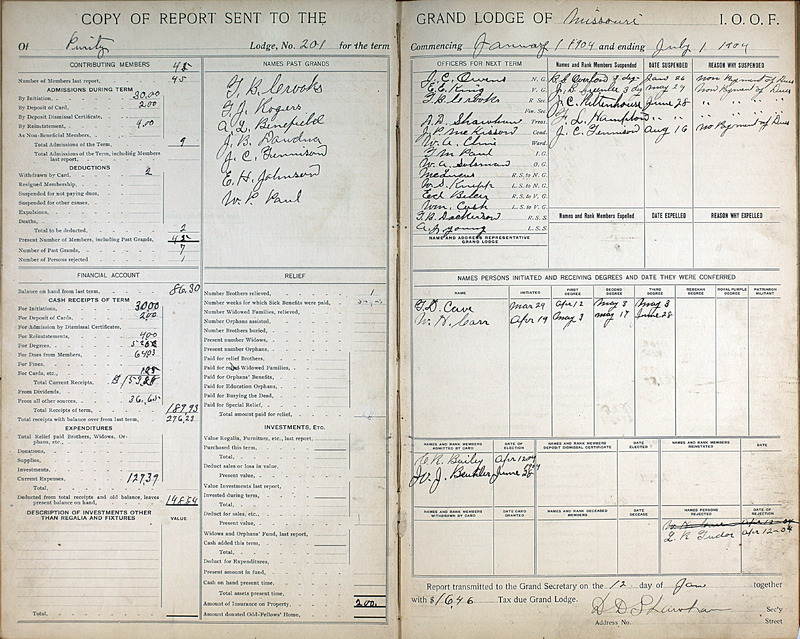 COPY OF REPORT SENT TO THE
Of Puritz Lodge, No. 201 for the term
CONTRIBUTING MEMBERS 45
Number of Members last report, 45
ADMISSIONS DURING TERM
By Initiation, 30.00
By Deposit of Card, 2.00
By Deposit Dismissal Certificate,
By Reinstatement, 4.00
As Non-Beneficial Members,
Total Admissions of the Term, 9
Total Admissions of the Term, including Members last report,
DEDUCTIONS
Withdrawn by Card, 2
Resigned Membership,
Suspended for not paying dues,
Suspended for other causes,
Expulsions,
Deaths,
Total to be deducted, 2
Present Number of Members, including Past Grands,
Number of Past Grands, 7
Number of Persons rejected 1
NAMES PAST GRANDS
T. B. Crooks
T. J. Rogers
A. L. Benefield
J. C. Tennison
E. H. Johnson
W. P. Paul
FINANCIAL ACCOUNT
Balance on hand from last term, 86.30
CASH RECEIPTS OF TERM
For Initiations, 30.00
For Deposit of Cards, 2.00
For Admission by Dismissal Certificates,
For Reinstatements, 4.00
For Degrees,
For Dues from Members, 64.03
For Fines,
For Cards, etc.,
Total Current Receipts,
From Dividends,
From all other sources, 36.65
Total Receipts of term, 189.93
Total receipts with balance over from last term, 276.23
EXPENDITURES
Total Relief paid Brothers, Widows, Orphans, etc.,
Donations,
Supplies,
Investments,
Current Expenses, 127.39
Total,
Deducted from total receipts and old balance, leaves present balance on hand, 148.84
DESCRIPTION OF INVESTMENTS OTHER THAN REGALIA AND FIXTURES
VALUE
Total,
RELIEF
Number Brothers relieved, 1
Number weeks for which Sick Benefits were paid,
Number Widowed Families, relieved,
Number Orphans assisted,
Number Brothers buried,
Present number Widows,
Present number Orphans,
Paid for relief Brothers,
Paid for relief Widowed Families,
Paid for Orphans' Benefits,
Paid for Education Orphans,
Paid for Burying the Dead,
Paid for Special Relief,
Total amount paid for relief,
INVESTMENTS, Etc.
Value Regalia, Furniture, etc., last report,
Purchased this term,
Total,
Deduct sales or loss in value,
Present value,
Value Investments last report,
Invested during term,
Total,
Deduct for sales, etc.,
Present value,
Widows and Orphans' Fund, last report,
Cash added this term,
Total,
Deduct for Expenditures,
Present amount in fund,
Cash on hand present time,
Total assets present time,
Amount of Insurance on Property, 200.
Amount donated Odd-Fellows' Home,
GRAND LODGE OF Missouri I. O. O. F.
Commencing January 1 1904 and ending July 1 1904
OFFICERS FOR NEXT TERM
J. C. Owens N. G.
E. E. King V. G.
T. B. Crooks R. Sec.
Fin. Sec.
Treas.
J. P. McKisson Cond.
W. A. Cline Ward.
T. M. Paul I. G.
O. G.
McLucas R. S. to N. G.
L. S. to N. G.
R. S. to V. G.
Wm. Cash L. S. to V. G.
R. S. S.
A. B. Young L. S. S.
NAME AND ADDRESS REPRESENTATIVE GRAND LODGE
Names and Rank Members Suspended DATE SUSPENDED REASON WHY SUSPENDED
Jan 26 non Payment of Dues
May 24 Non Payment of Dues
J. C. Rittenhouse June 28 " " "
F. L. Hampton " " " " "
J. C. Tennison Aug 16 no Payment of Dues
Names and Rank Members Expelled DATE EXPELLED REASON WHY EXPELLED
NAMES PERSONS INITIATED AND RECEIVING DEGREES AND DATE THEY WERE CONFERRED
NAME INITIATED FIRST DEGREE SECOND DEGREE THIRD DEGREE REBEKAH DEGREE ROYAL PURPLE DEGREE PATRIARCH MILITANT
T. D. Cave Mar 29 Apr 12 May 3 May 3
W. H. Carr Apr 19 May 3 May 17 June 28
NAMES AND RANK MEMBERS ADMITTED BY CARD DATE OF ELECTION NAMES AND RANK MEMBERS DEPOSIT DISMISSAL CERTIFICATE DATE ELECTED NAMES AND RANK MEMBERS REINSTATED DATE
C. R. Bailey Apr 12 04
W. J. Beukler June 28
NAMES AND RANK MEMBERS WITHDRAWN BY CARD DATE CARD GRANTED NAMES AND RANK DECEASED MEMBERS DATE DECEASE NAMES PERSONS REJECTED DATE OF REJECTION
Apr 12-04
L. R. Tudor Apr 12-04
Report transmitted to the Grand Secretary on the 12 day of Jan together
with $16.46 Tax due Grand Lodge.
Sec'y
Address No. Street